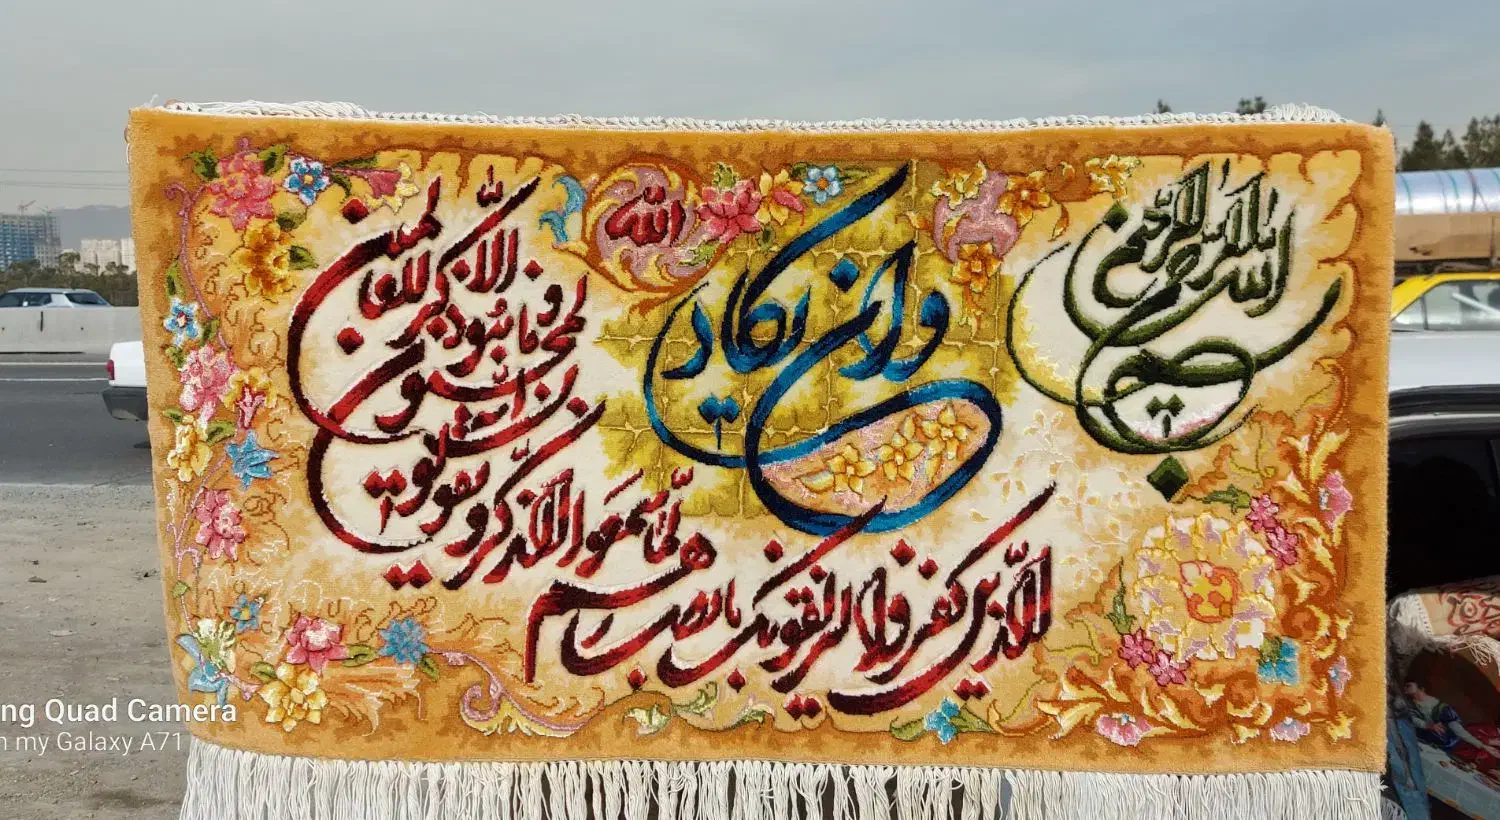 بسم الله الرحمن الرحیم
وان یکاد
الله
الذین کفروا لیزلقونک بابصارهم
لما سمعوا الذکر و یقولون
انه لمجنون
و ما هو الا ذکر للعالمین
ng Quad Camera
n my Galaxy A71